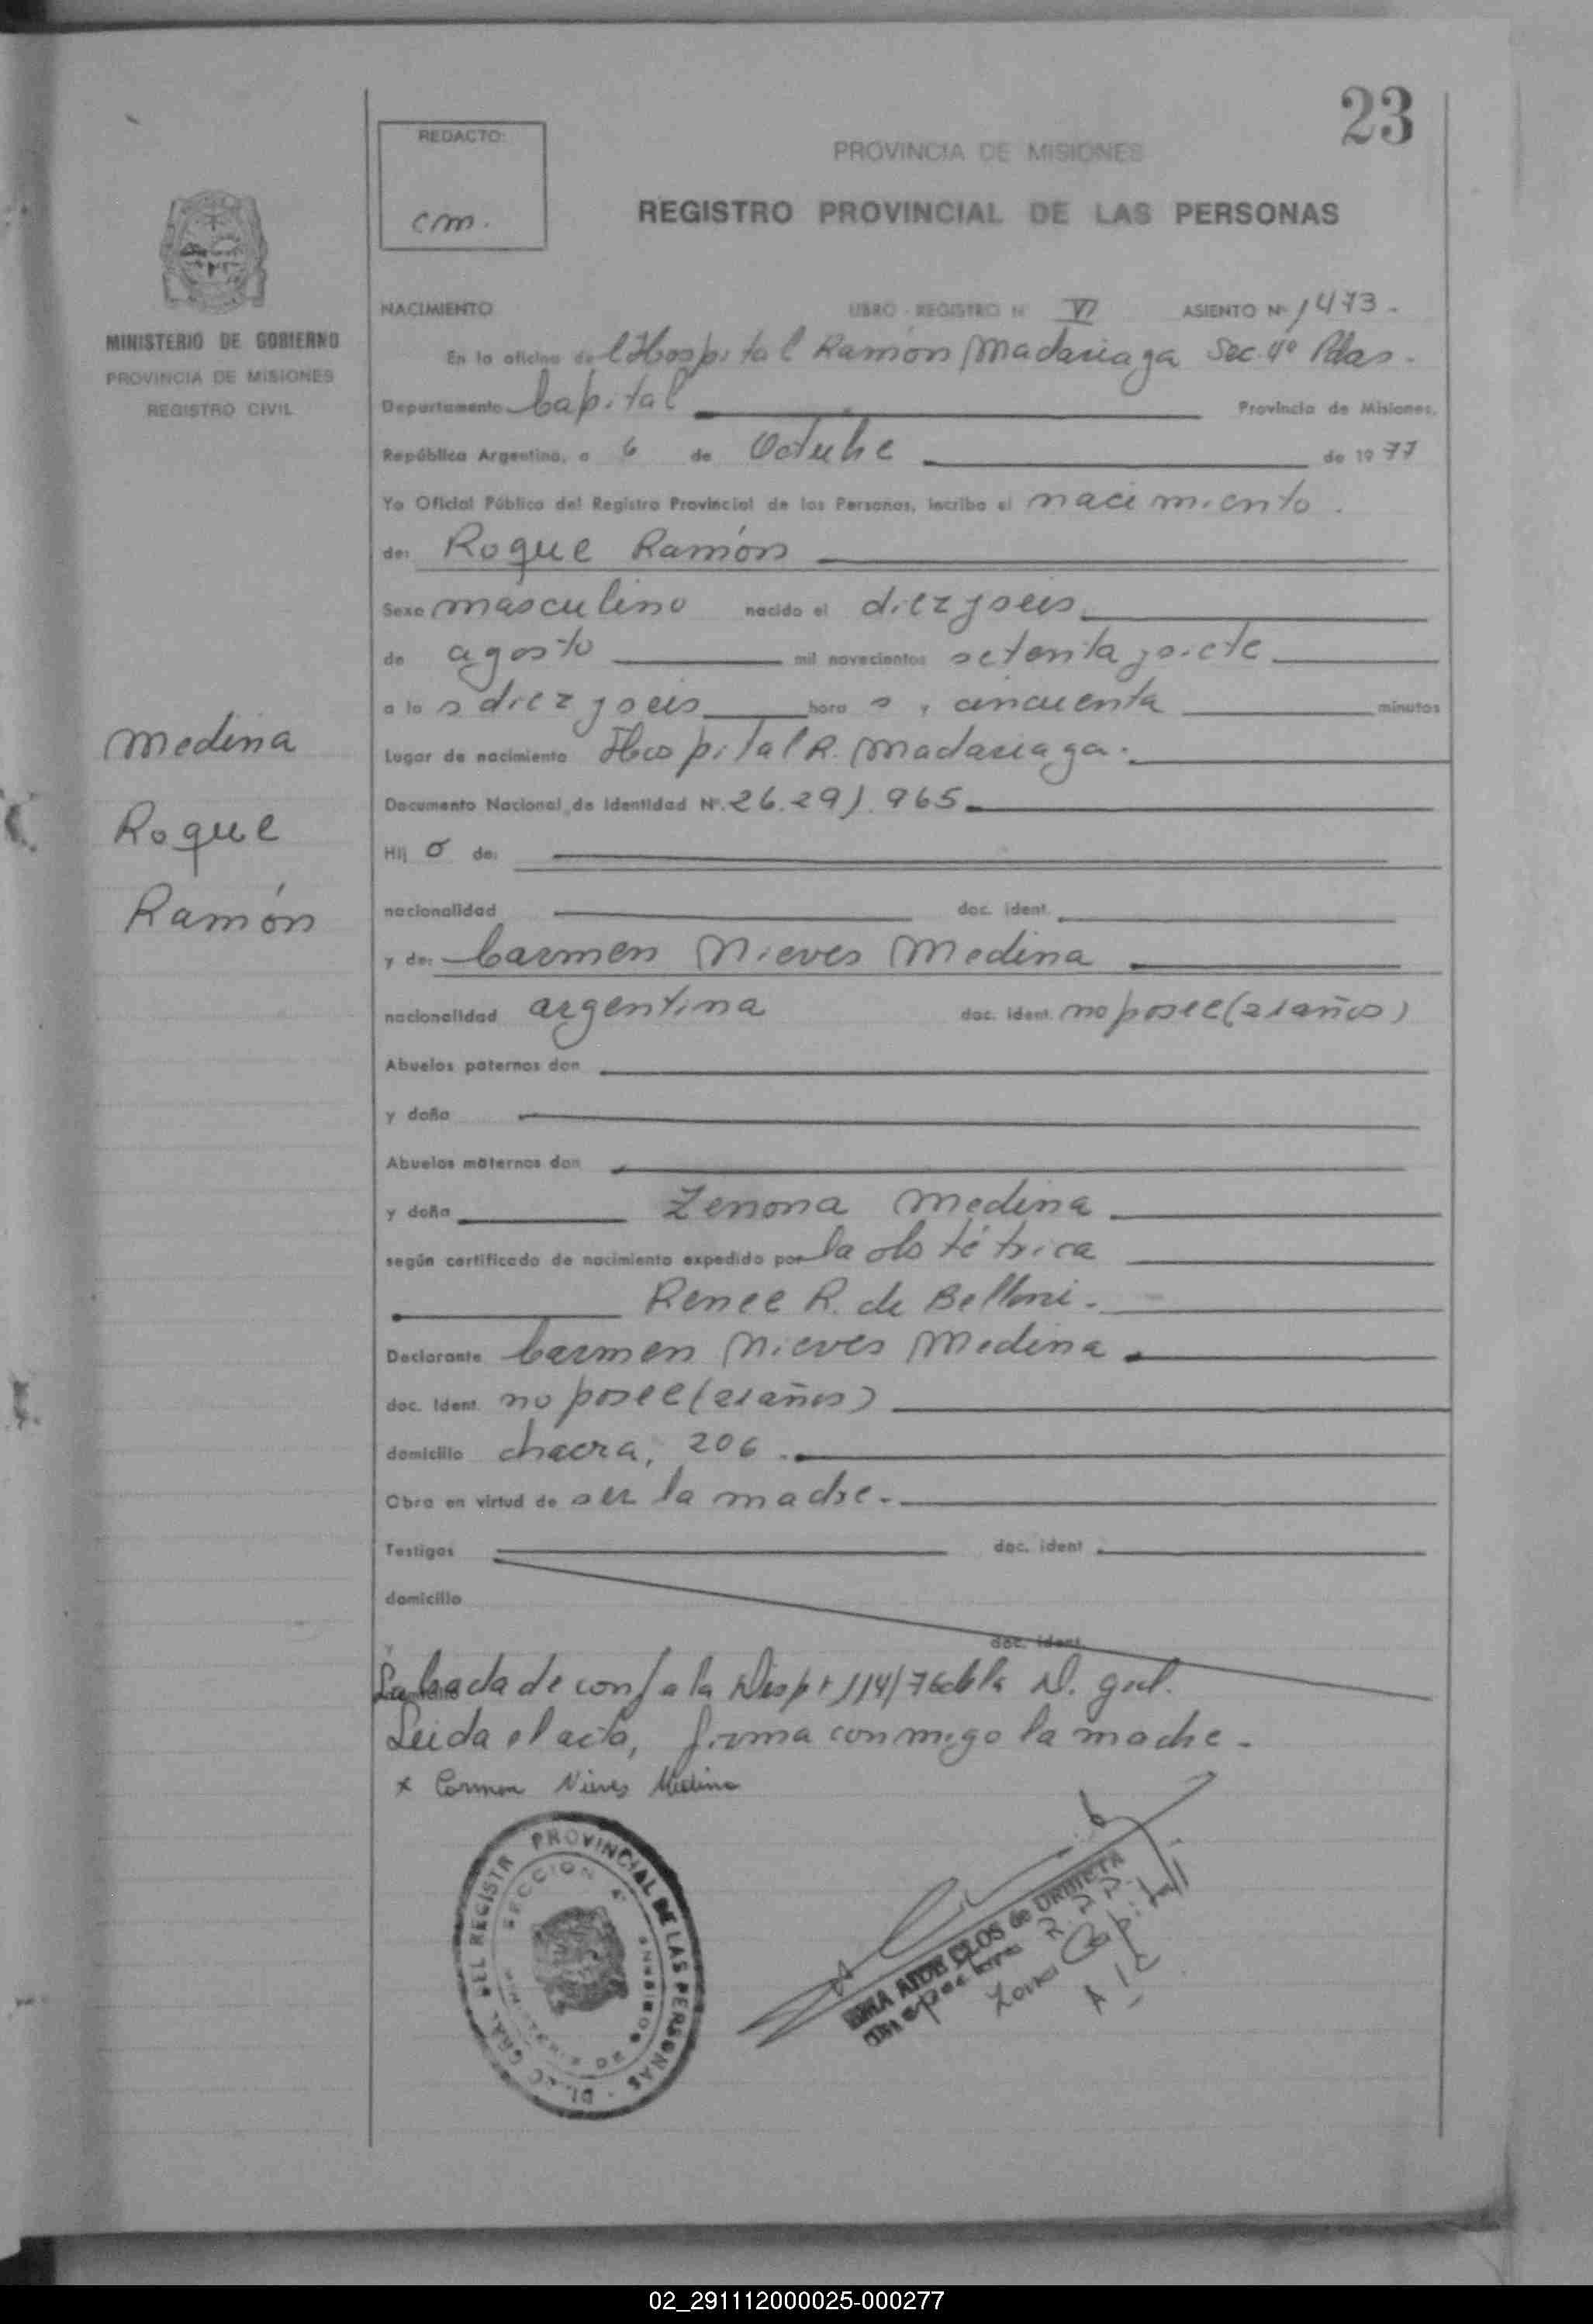 23
REDACTO:
cm.
PROVINCIA DE MISIONES
REGISTRO PROVINCIAL DE LAS PERSONAS
MINISTERIO DE GOBIERNO
PROVINCIA DE MISIONES
REGISTRO CIVIL
NACIMIENTO LIBRO REGISTRO Nº VI ASIENTO Nº 1473.
En la oficina del Hospital Ramón Madariaga Sec. 4º Pdas.
Departamento Capital Provincia de Misiones,
República Argentina, a 6 de Octubre de 1977
Yo Oficial Público del Registro Provincial de las Personas, incribo el nacimiento.
de: Roque Ramón
Sexo masculino nacido el diez y seis
de agosto mil novecientos setenta y siete
a las diez y seis horas y cincuenta minutos
Medina
Roque
Ramón
Lugar de nacimiento Hospital R. Madariaga.
Documento Nacional de Identidad Nº. 26.291.965
Hijo de:
nacionalidad doc. ident.
y de: Carmen Nieves Medina
nacionalidad argentina doc. ident. no posee (21 años)
Abuelos paternos don
y doña
Abuelos maternos don
y doña Zenona Medina
según certificado de nacimiento expedido por la obstétrica
Renee R. de Belloni.
Declarante Carmen Nieves Medina
doc. ident. no posee (21 años)
domicilio chacra, 206.
Obra en virtud de ser la madre.
Testigos doc. ident
domicilio
y doc. ident.
Labrada de conf a la Disp. 114/76 de la D. gral.
Leida el acta, firma conmigo la madre.
x Carmen Nieves Medina
PROVINCIAL DE LAS PERSONAS
DEL REGISTR
SECCION 4ª
AIDE CLOS de URBIETA
Zona Capital